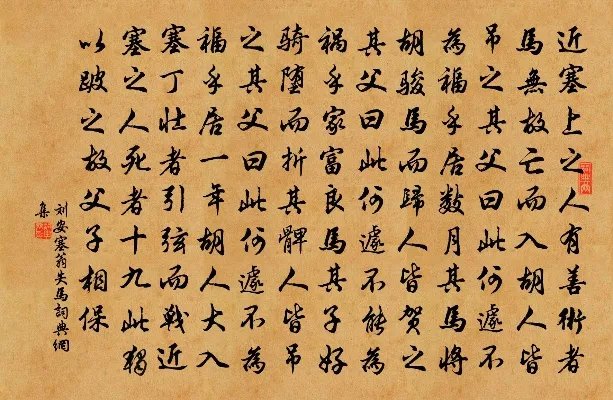 近塞上之人有善術者
馬無故亡而入胡人皆
吊之其父曰此何遽不
為福乎居數月其馬將
胡駿馬而歸人皆賀之
其父曰此何遽不能為
禍乎家富良馬其子好
騎墮而折其髀人皆吊
之其父曰此何遽不為
福乎居一年胡人大入
塞丁壯者引弦而戰近
塞之人死者十九此獨
以跛之故父子相保
刘安塞翁失馬詞典網
集